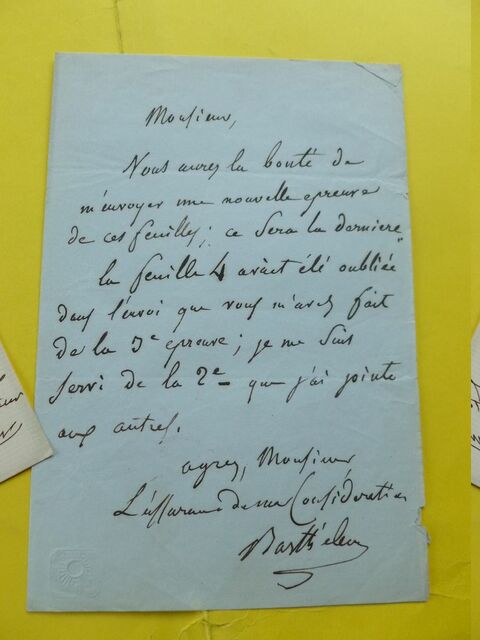 Monsieur,
Vous aurez la bonté de
m'envoyer une nouvelle epreuve
de ces feuilles; ce sera la derniere
la feuille 4 avait été oubliée
dans l'envoi que vous m'avez fait
de la 3e epreuve; je me suis
servi de la 2e que j'ai jointe
aux autres.
agrez, Monsieur
L'assurance de ma Consideration
Barthélemy